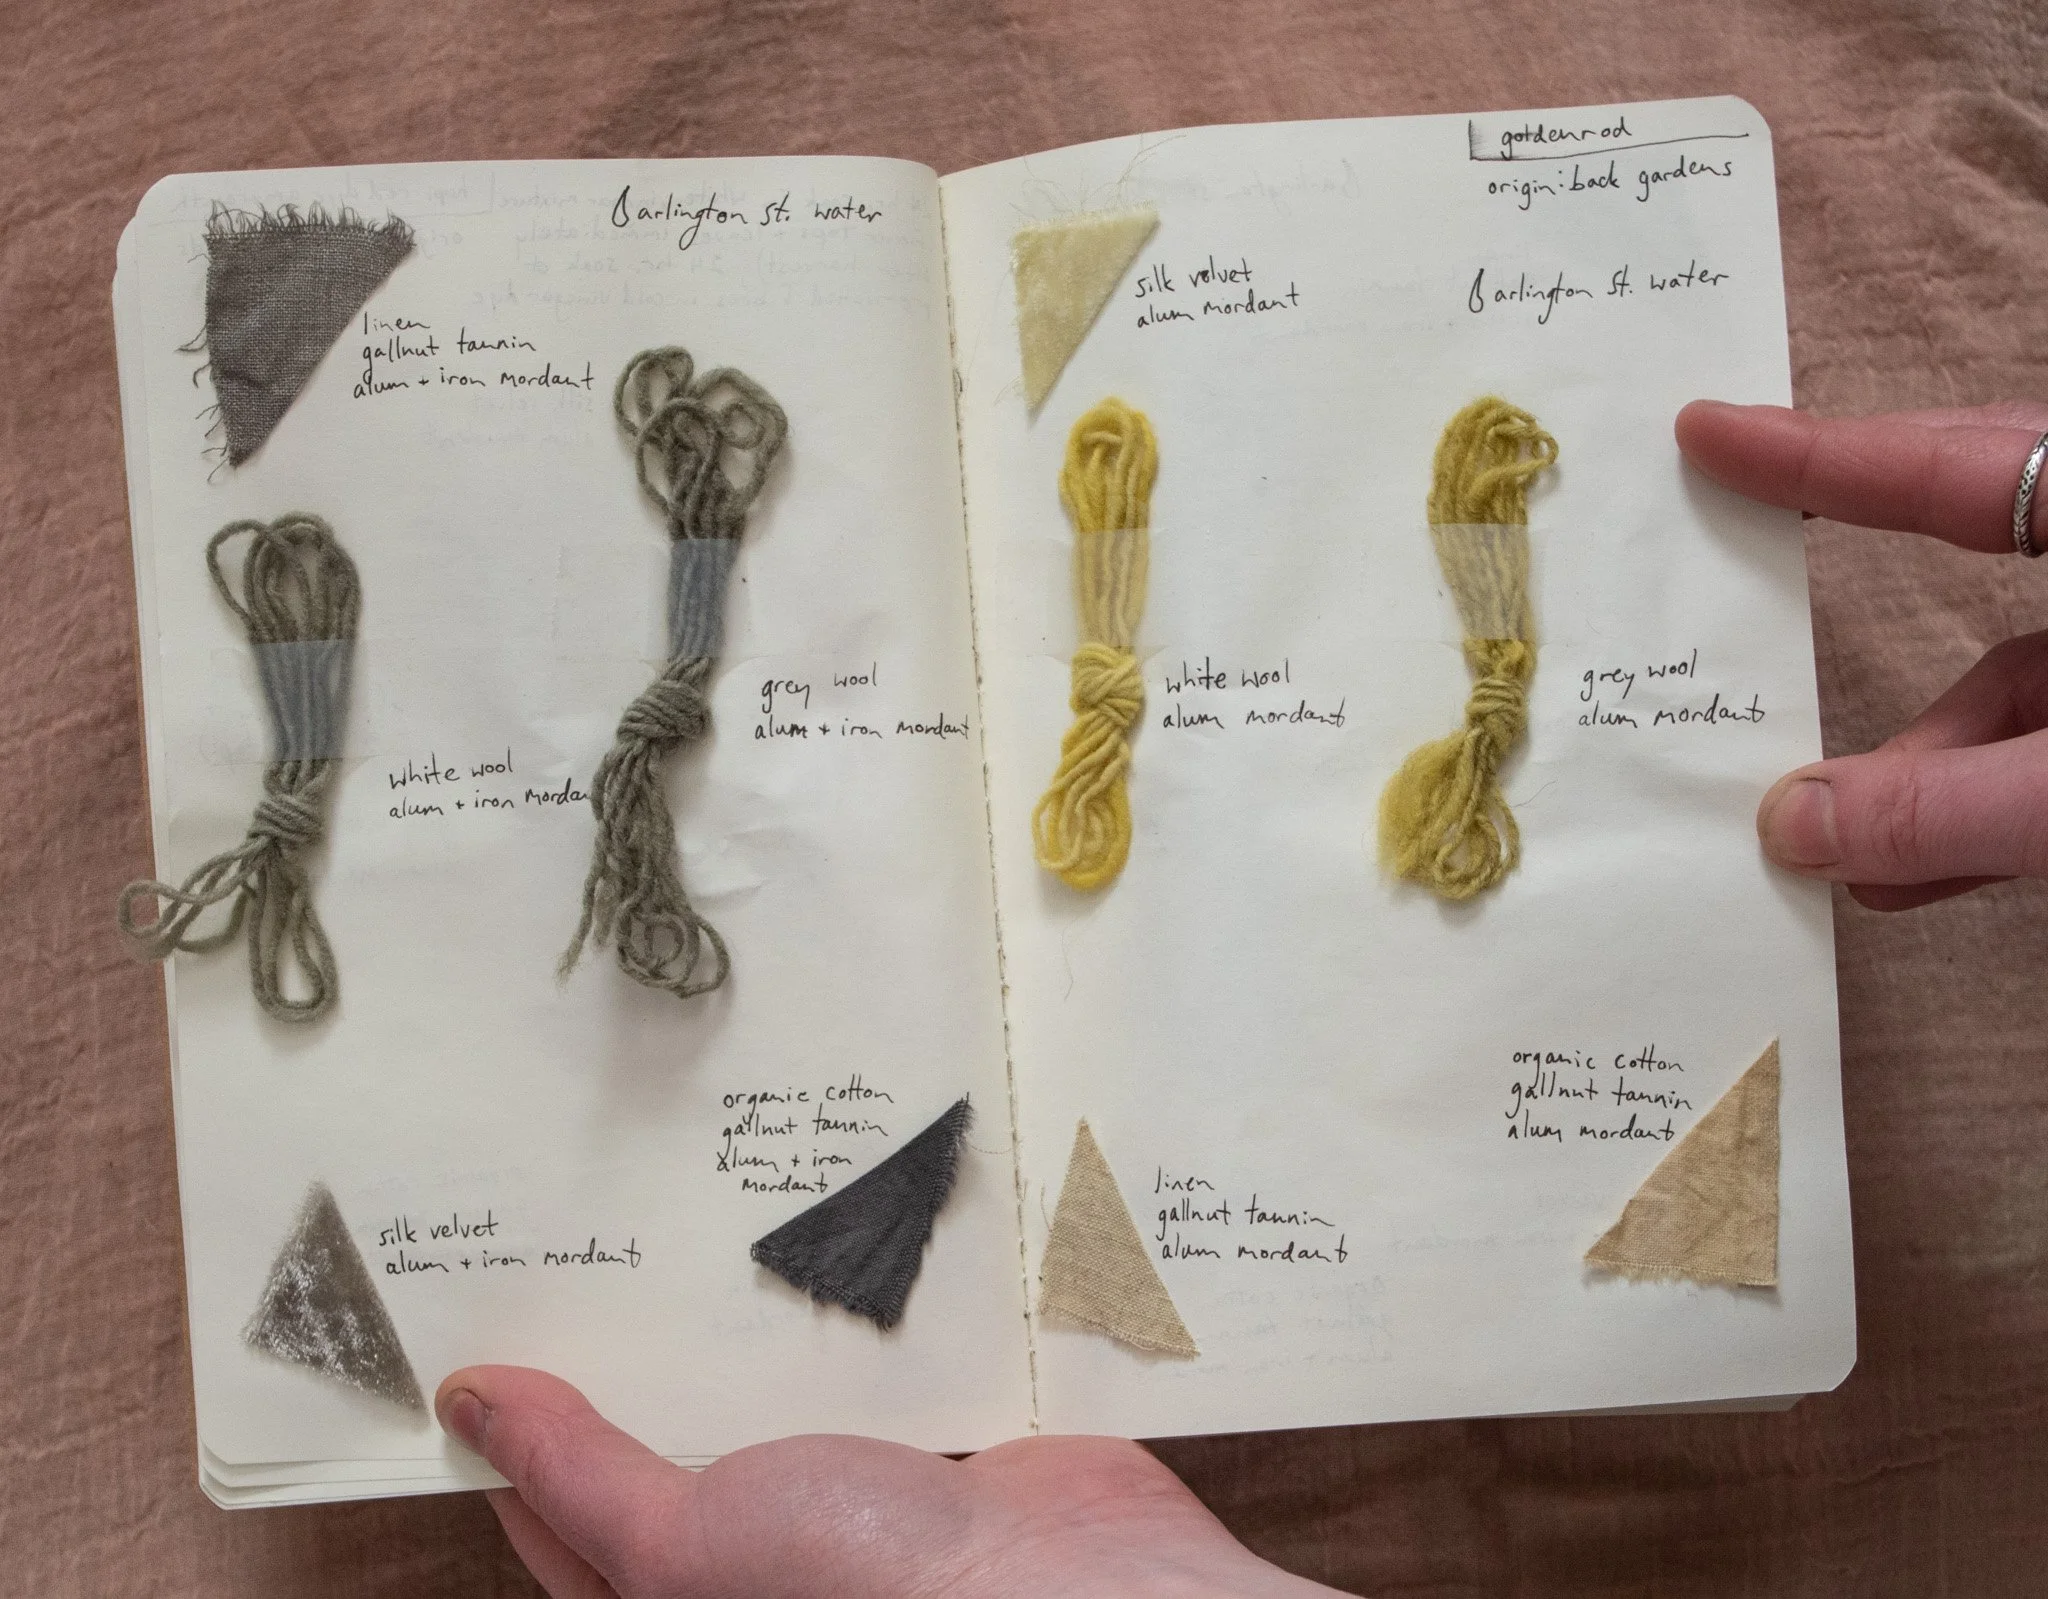 arlington st. water
linen
gallnut tannin
alum + iron mordant
grey wool
alum + iron mordant
white wool
alum + iron morda
organic cotton
gallnut tannin
alum + iron
mordant
silk velvet
alum + iron mordant
goldenrod
origin: back gardens
silk velvet
alum mordant
arlington st. water
white wool
alum mordant
grey wool
alum mordant
organic cotton
gallnut tannin
alum mordant
linen
gallnut tannin
alum mordant